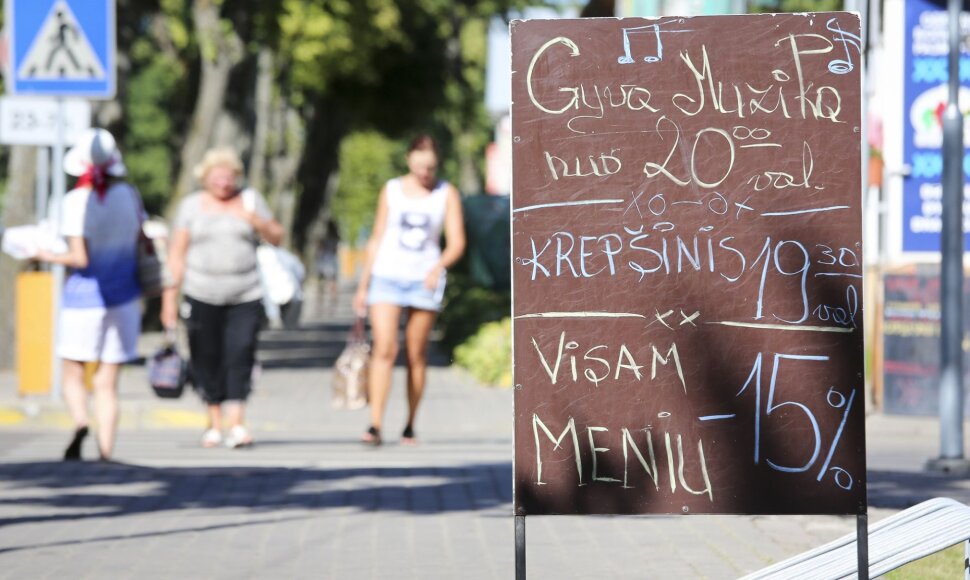 23-
Gyva Muzika
nuo 20⁰⁰ val.
xo-ox
KREPŠINIS 19³⁰ val
xx
VISAM
MENIU -15%